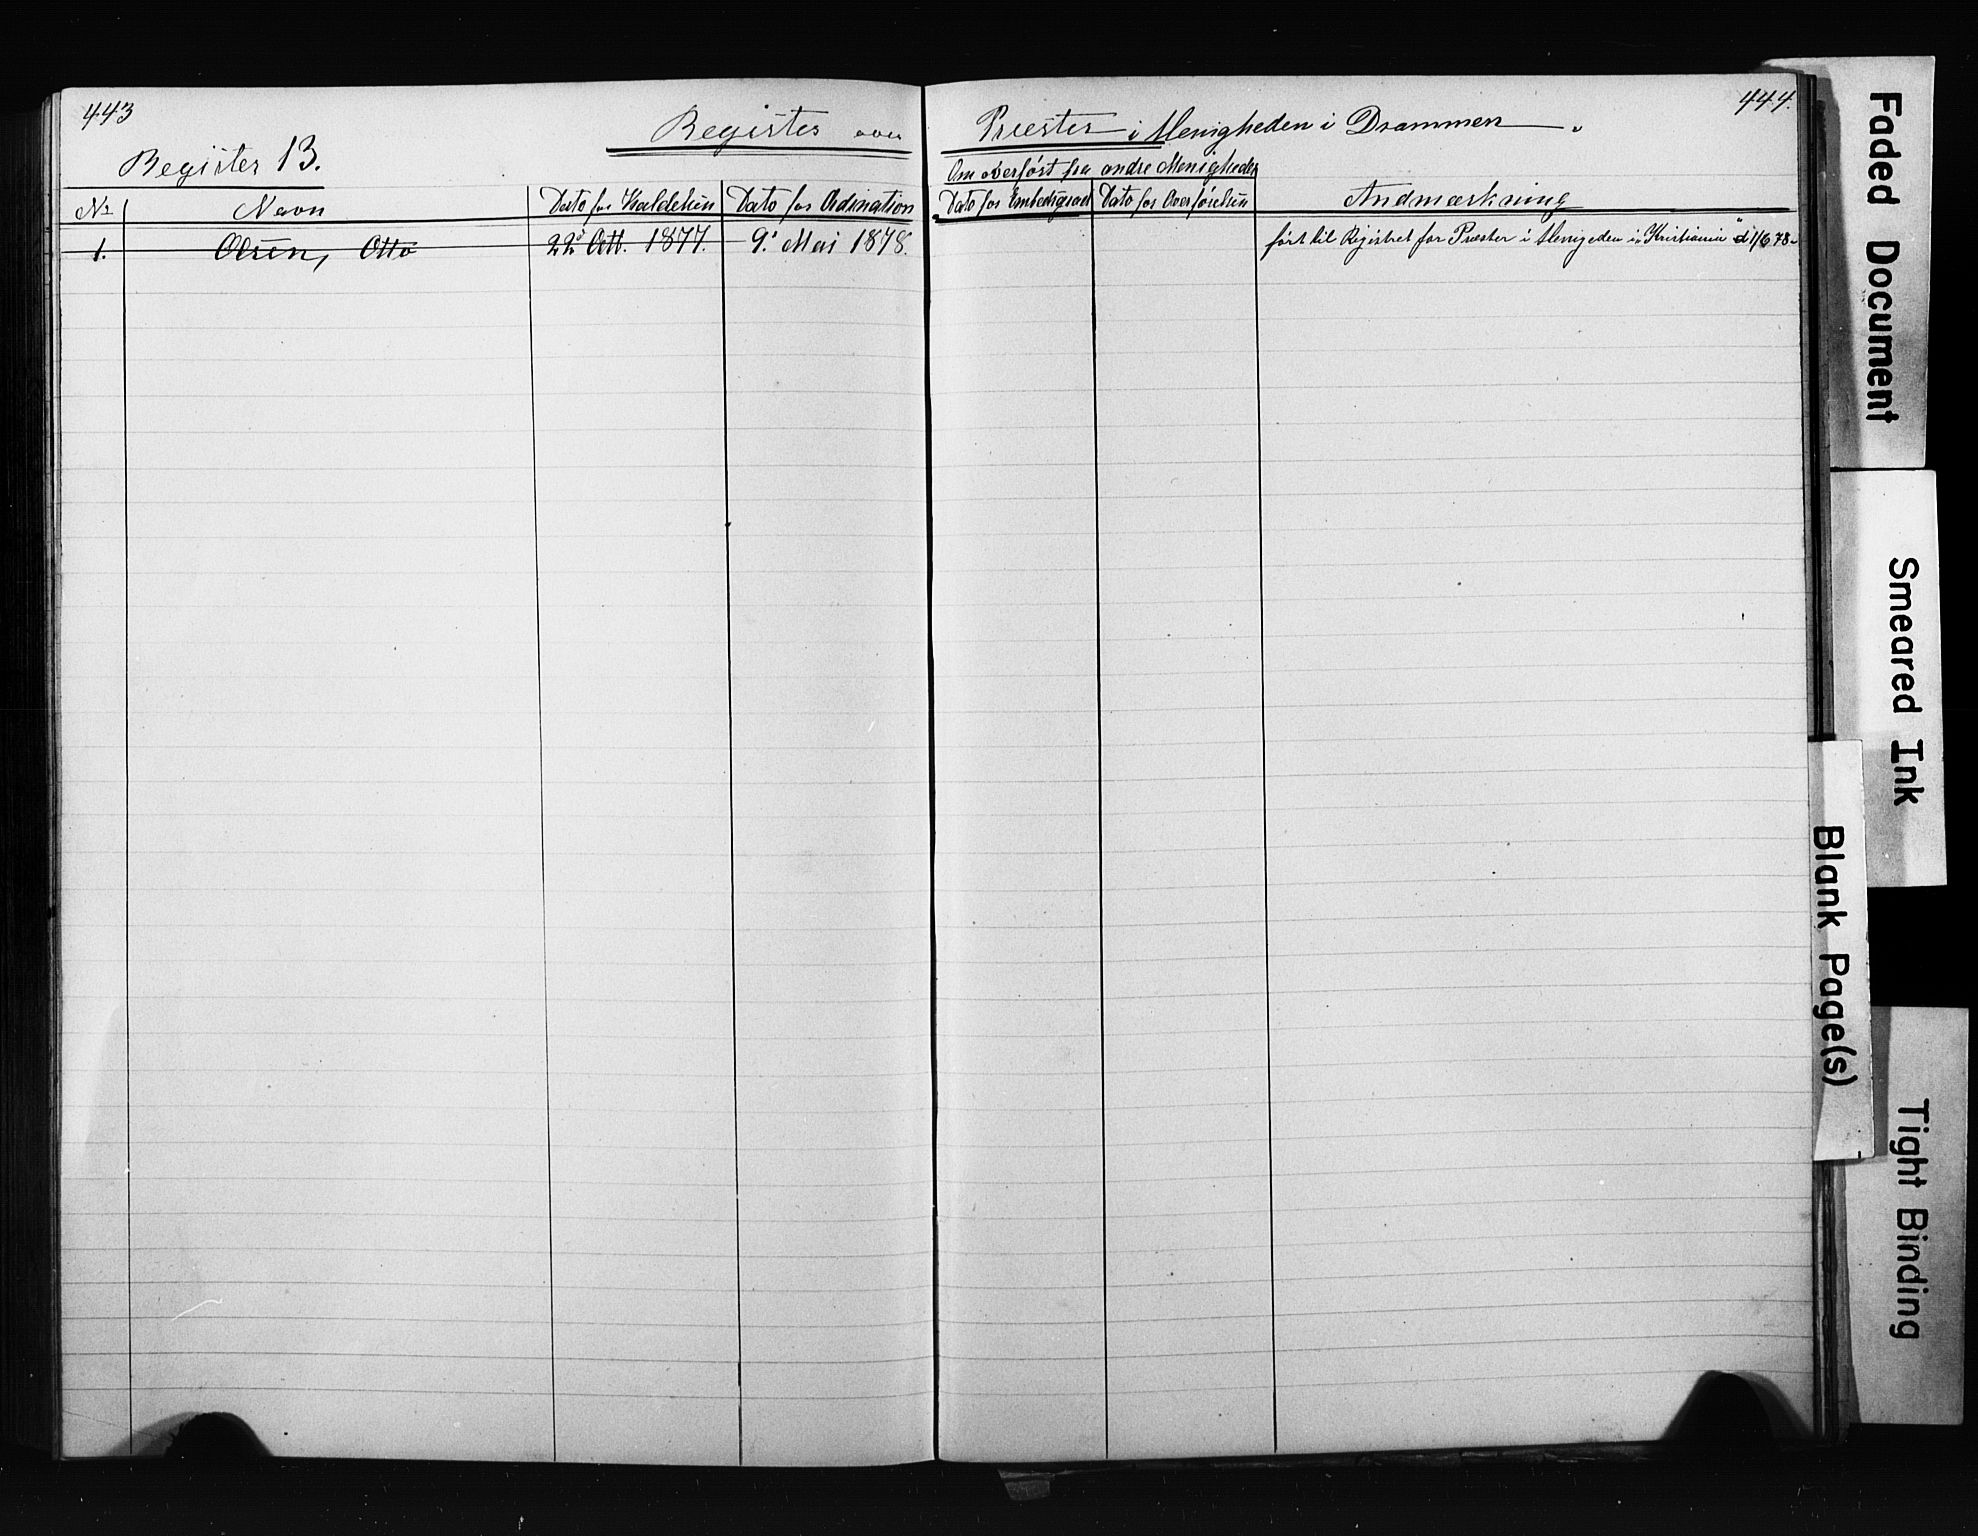 443
444.
Register over Præster i Menigheden i Drammen.
Register 13.
Om overført fra andre Menigheder
No Navn Dato for Kaldelsen Dato for Ordination Dato for Embedsgrad Dato for Overførelsen Andmærkning
1. Olsen, Otto 22d Okt. 1877. 9d Mai 1878. ført til Registret for Præster i Menigeden i "Kristiania" d 1/6 78.
Faded Document
Smeared Ink
Blank Page(s)
Tight Binding